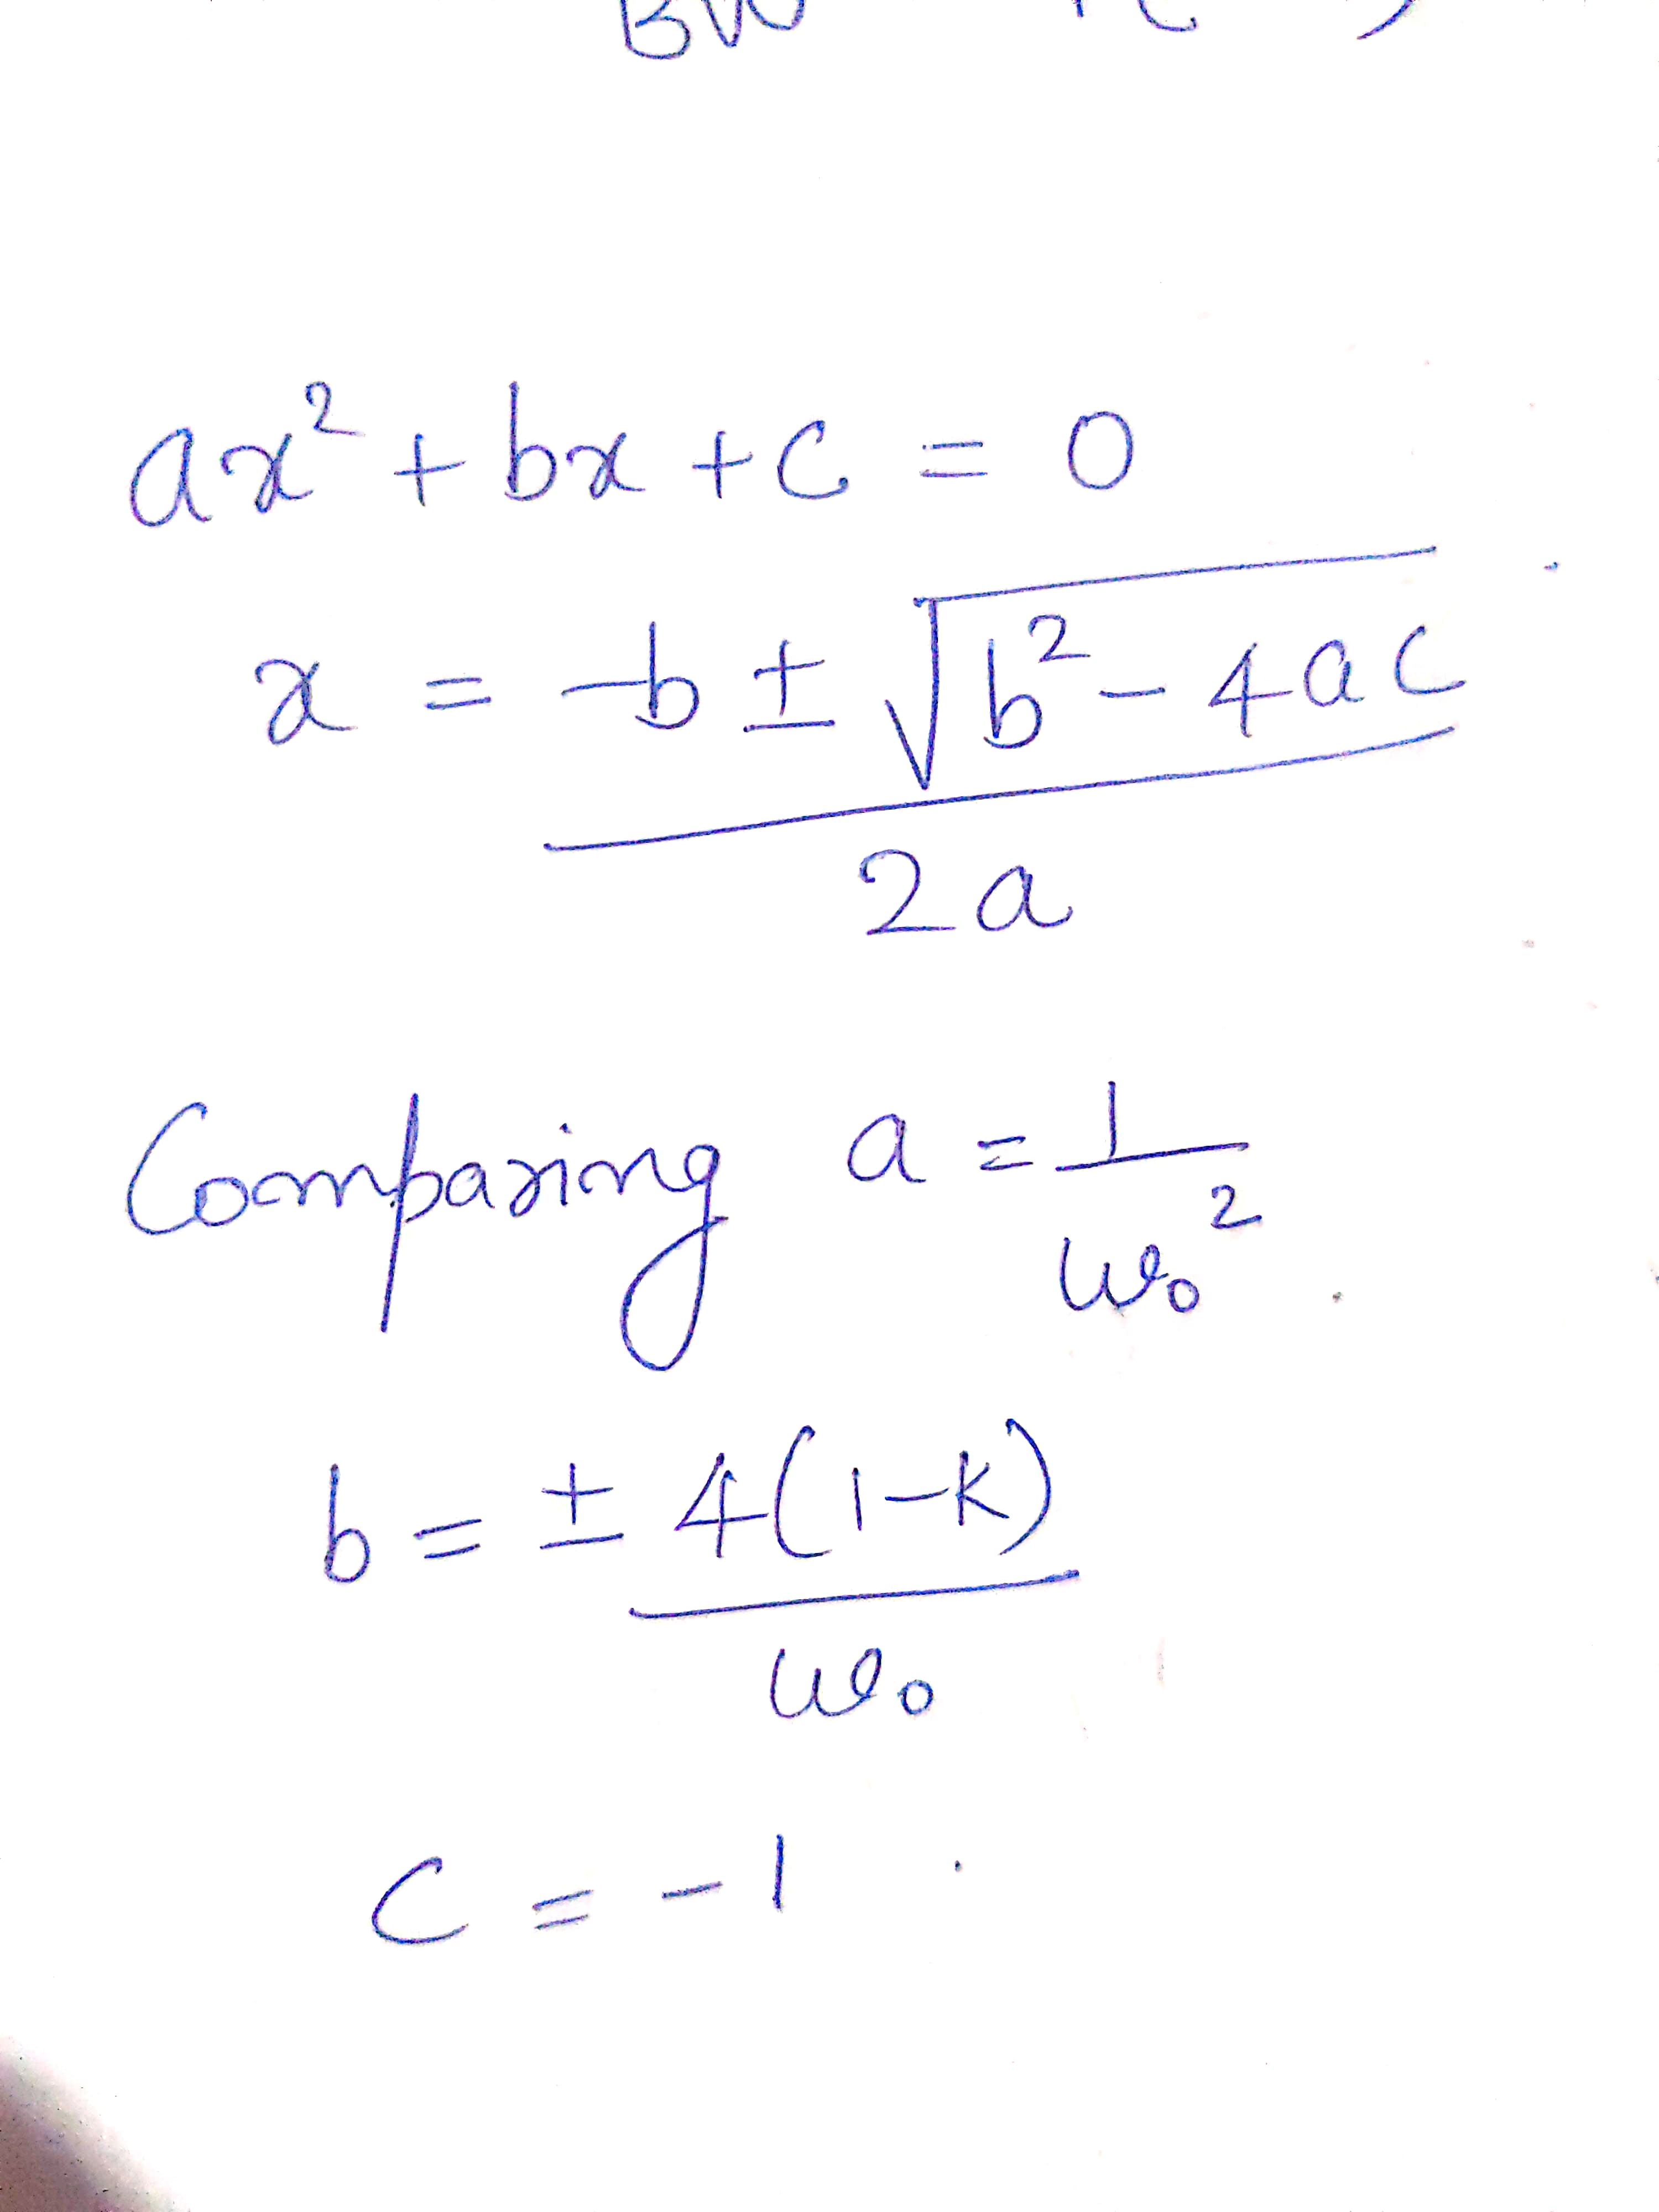 BW
ax² + bx + c = 0
x = -b ± √(b² - 4ac) / 2a
Comparing a = 1 / ω₀²
b = ± 4(1-K) / ω₀
c = -1